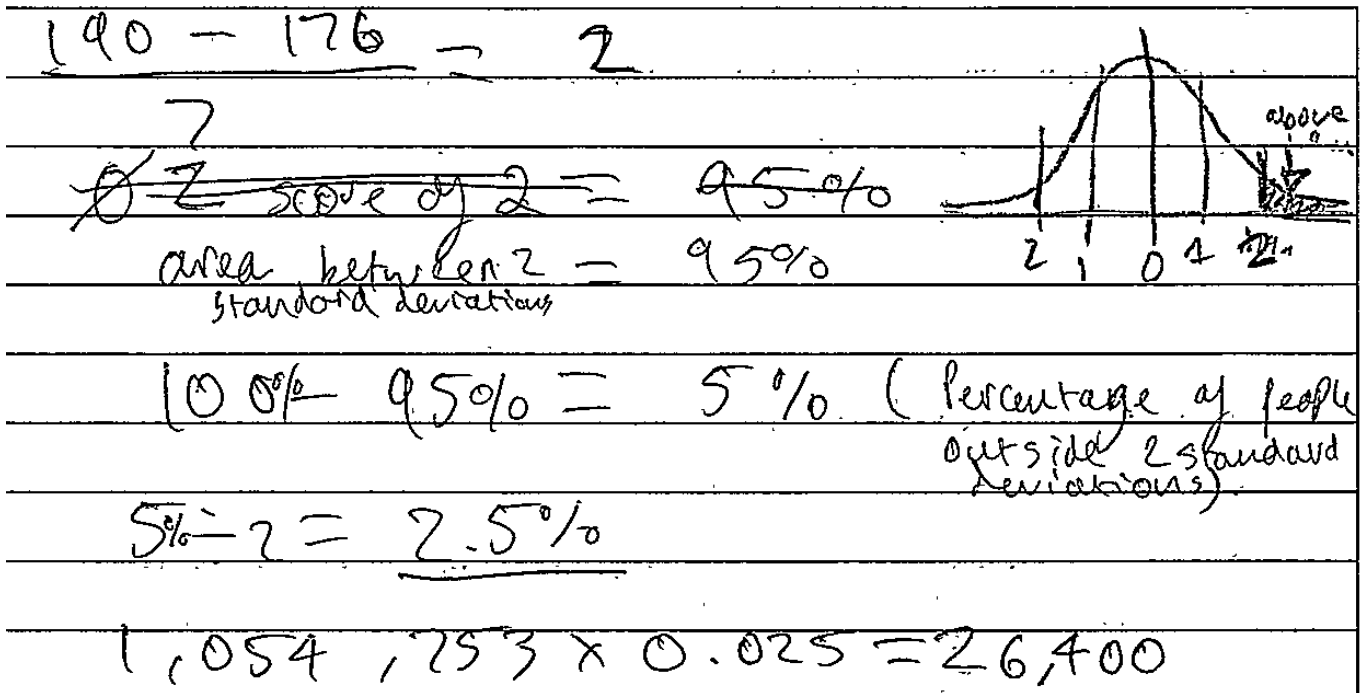 190 - 176 = 2
7
Z score of 2 = 95%
area between 2 = 95%
standard deviations
above
2 1 0 1 2
100% - 95% = 5% (Percentage of people
outside 2 standard
deviations).
5% ÷ 2 = 2.5%
1,054,253 x 0.025 = 26,400